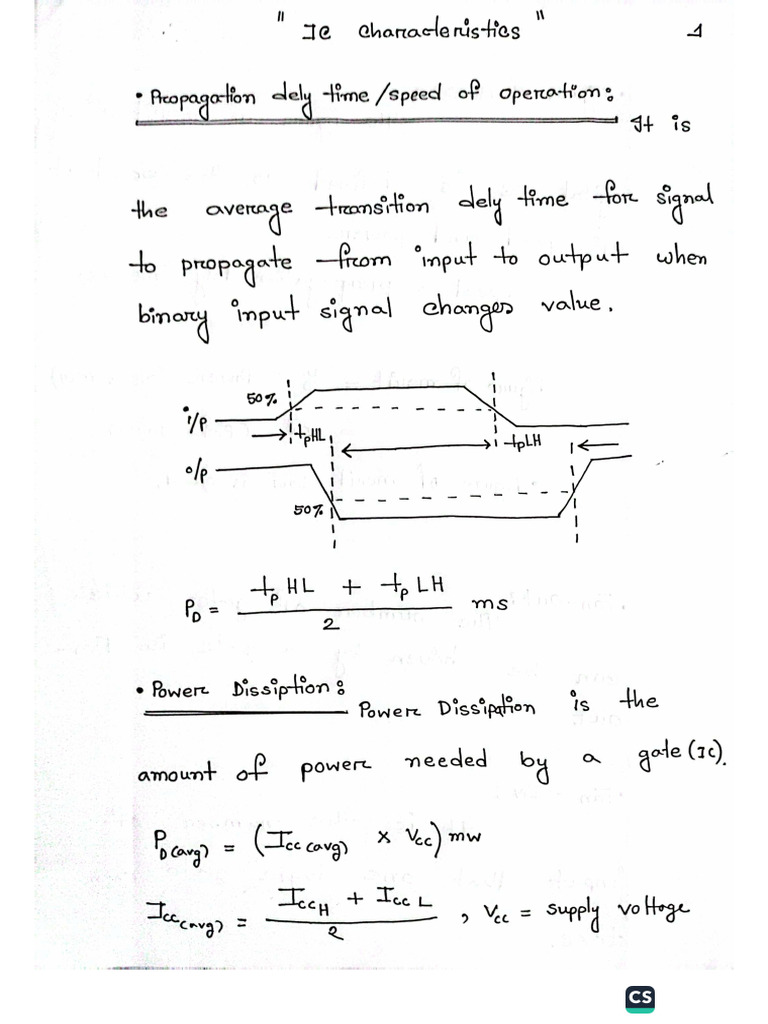 " IC Characteristics " 1
• Propagation dely time/speed of operation: It is
the average transition dely time for signal
to propagate from input to output when
binary input signal changes value.
50%
i/p
tpHL
tpLH
o/p
50%
PD = tpHL + tpLH / 2 ms
• Power Dissiption: Power Dissipation is the
amount of power needed by a gate (IC).
PD(avg) = (Icc(avg) x Vcc) mw
Icc(avg) = IccH + IccL / 2 , Vcc = supply voltage
CS